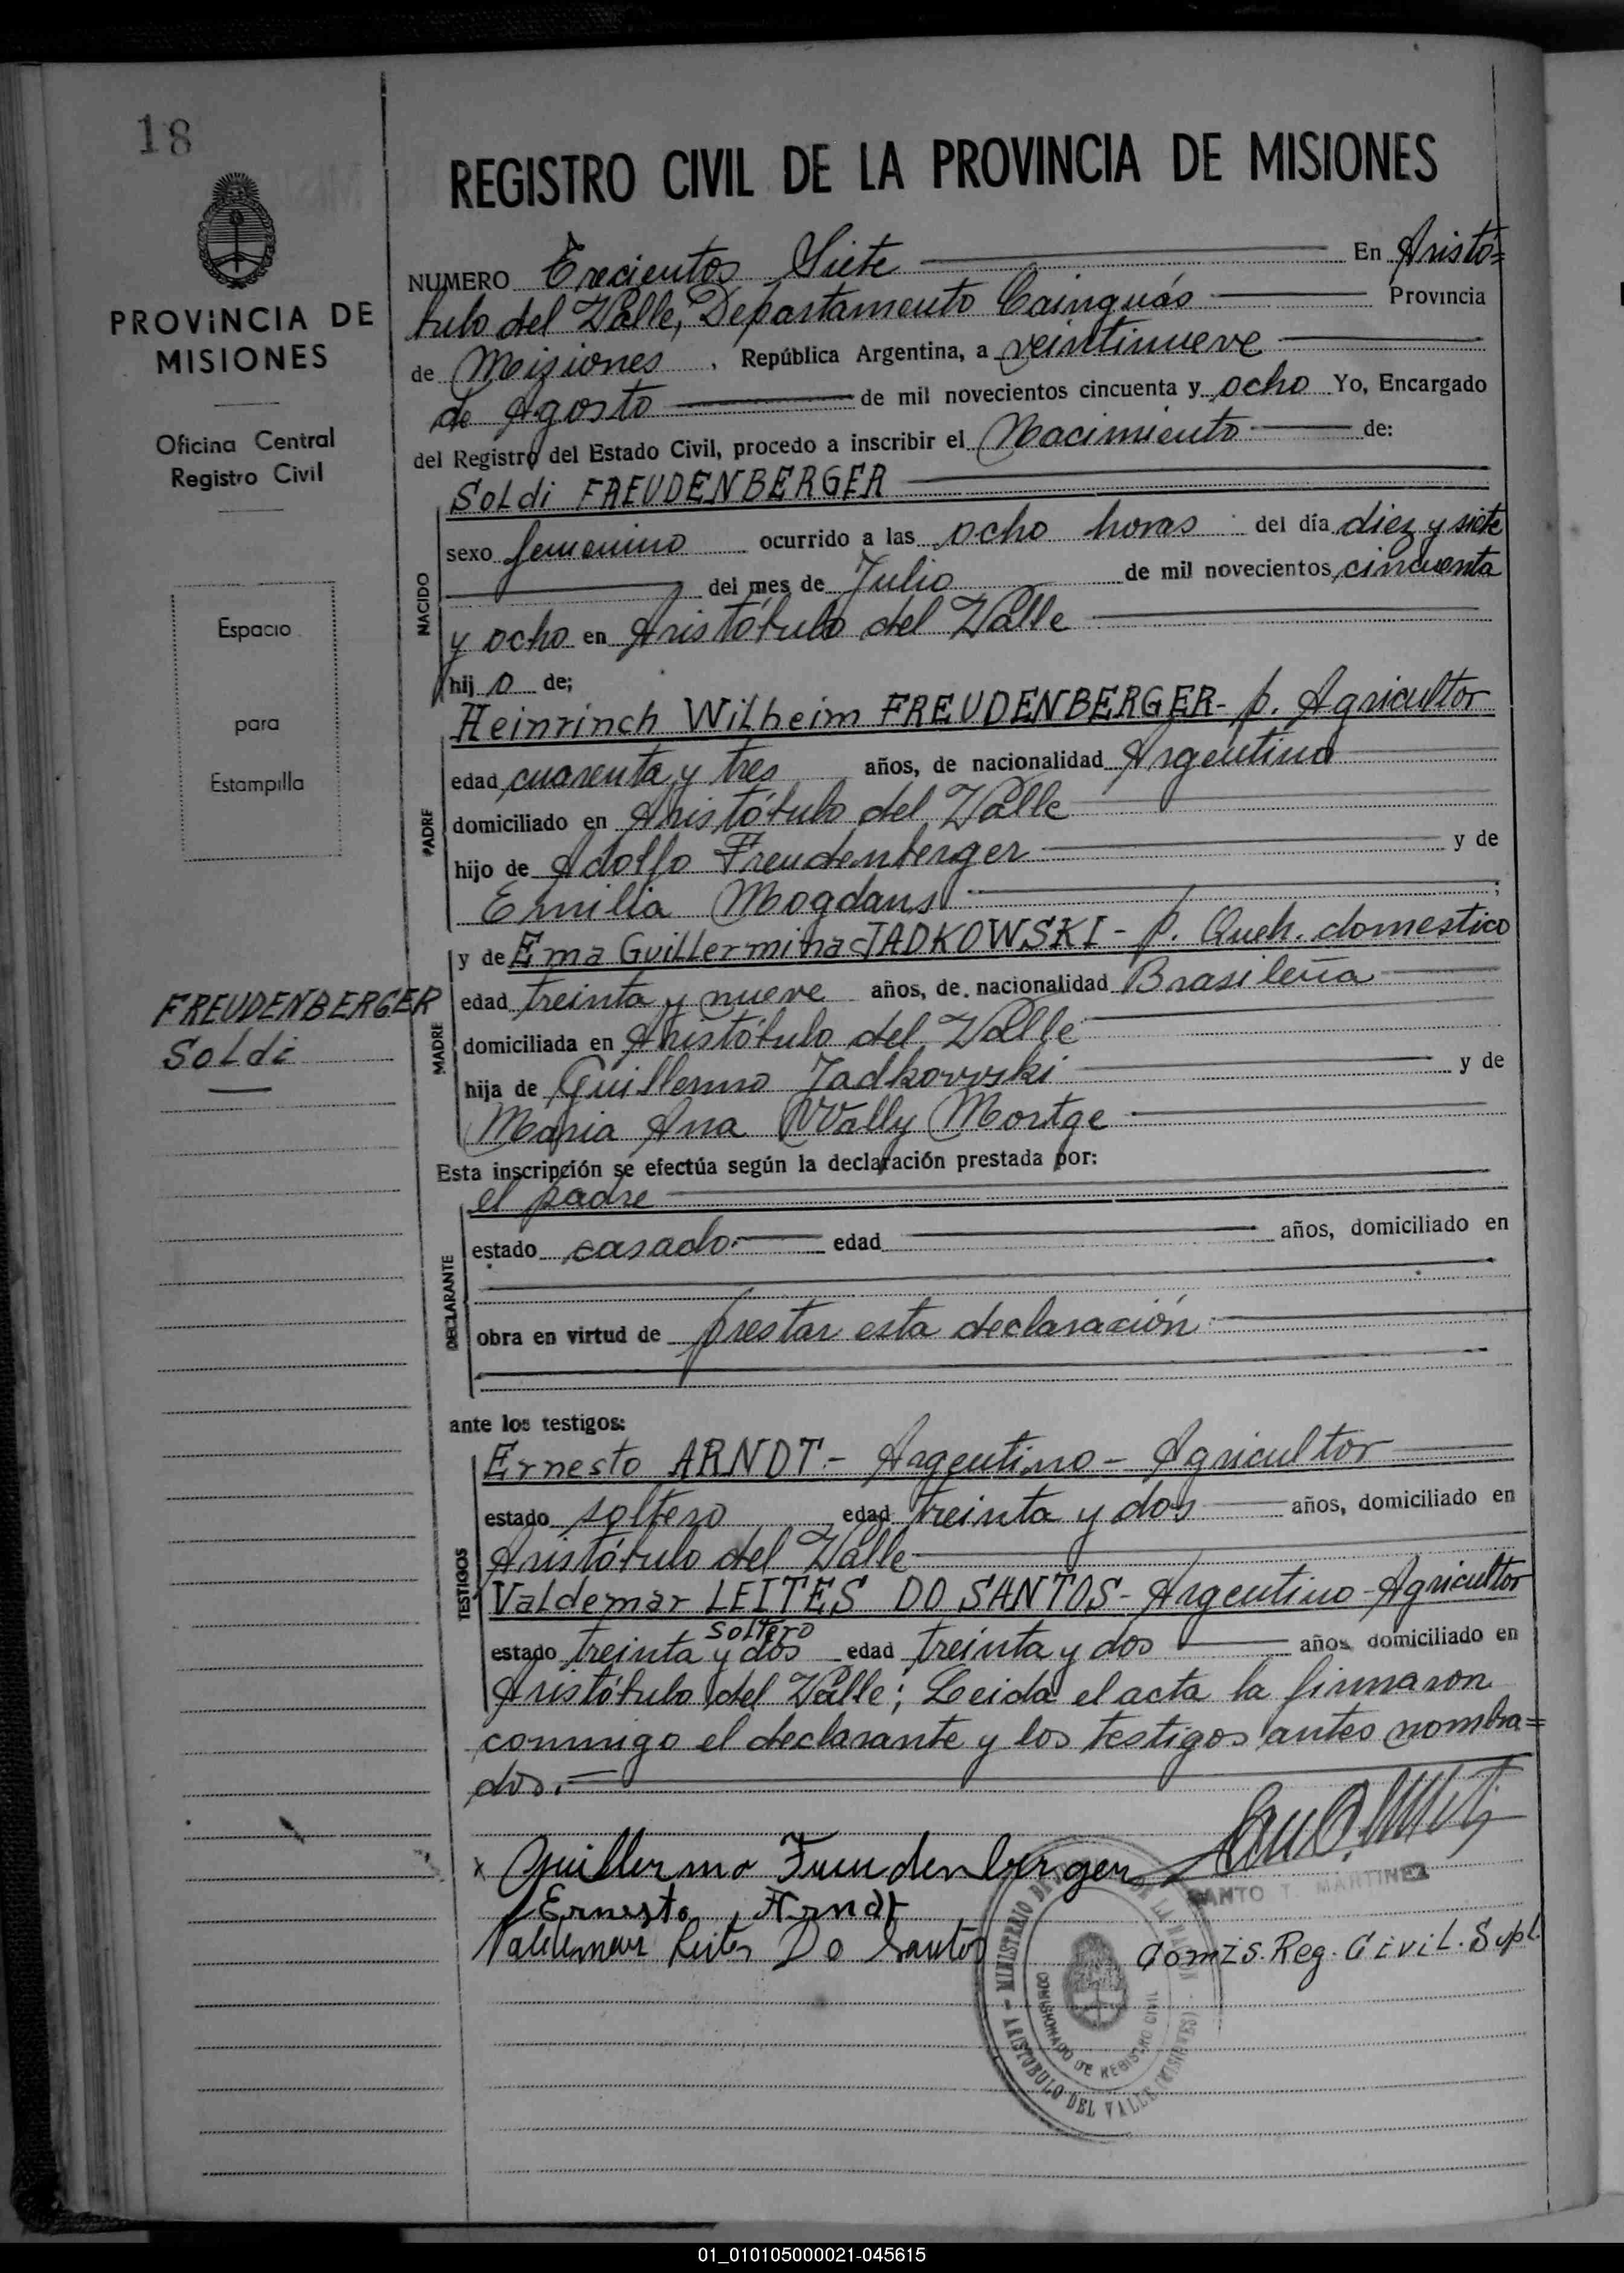 18
REGISTRO CIVIL DE LA PROVINCIA DE MISIONES
PROVINCIA DE
MISIONES
Oficina Central
Registro Civil
Espacio
para
Estampilla
FREUDENBERGER
Soldi
NUMERO Trecientos Siete En Aristó=
bulo del Valle, Departamento Cainguás Provincia
de Misiones, República Argentina, a veintinueve
de Agosto de mil novecientos cincuenta y ocho Yo, Encargado
del Registro del Estado Civil, procedo a inscribir el Nacimiento de:
NACIDO
Soldi FREUDENBERGER
sexo femenino ocurrido a las ocho horas del día diez y siete
del mes de Julio de mil novecientos cincuenta
y ocho en Aristóbulo del Valle
hij o de;
PADRE
Heinrinch Wilheim FREUDENBERGER - p. Agricultor
edad cuarenta y tres años, de nacionalidad Argentina
domiciliado en Aristóbulo del Valle
hijo de Adolfo Freudenberger y de
Emilia Mogdans;
MADRE
y de Ema Guillermina JADKOWSKI - p. Queh. domestico
edad treinta y nueve años, de nacionalidad Brasileña
domiciliada en Aristóbulo del Valle
hija de Guillermo Jadkowski y de
Maria Ana Wally Mortge
Esta inscripción se efectúa según la declaración prestada por:
DECLARANTE
el padre
estado casado edad años, domiciliado en
obra en virtud de prestar esta declaración
ante los testigos:
TESTIGOS
Ernesto ARNDT - Argentino - Agricultor
estado soltero edad treinta y dos años, domiciliado en
Aristóbulo del Valle
Valdemar LEITES DO SANTOS - Argentino - Agricultor
soltero
estado treinta y dos edad treinta y dos años domiciliado en
Aristóbulo del Valle; Leida el acta la firmaron
conmigo el declarante y los testigos antes nombra=
dos.=
x Guillermo Freudenberger
Ernesto Arndt
Valdemar Leites Do Santos
SANTO T. MARTINEZ
Comis. Reg. Civil. Supl.
MINISTERIO DE LA
COMISIONADO DE REGISTRO CIVIL
ARISTOBULO DEL VALLE (MISIONES)
01_010105000021-045615